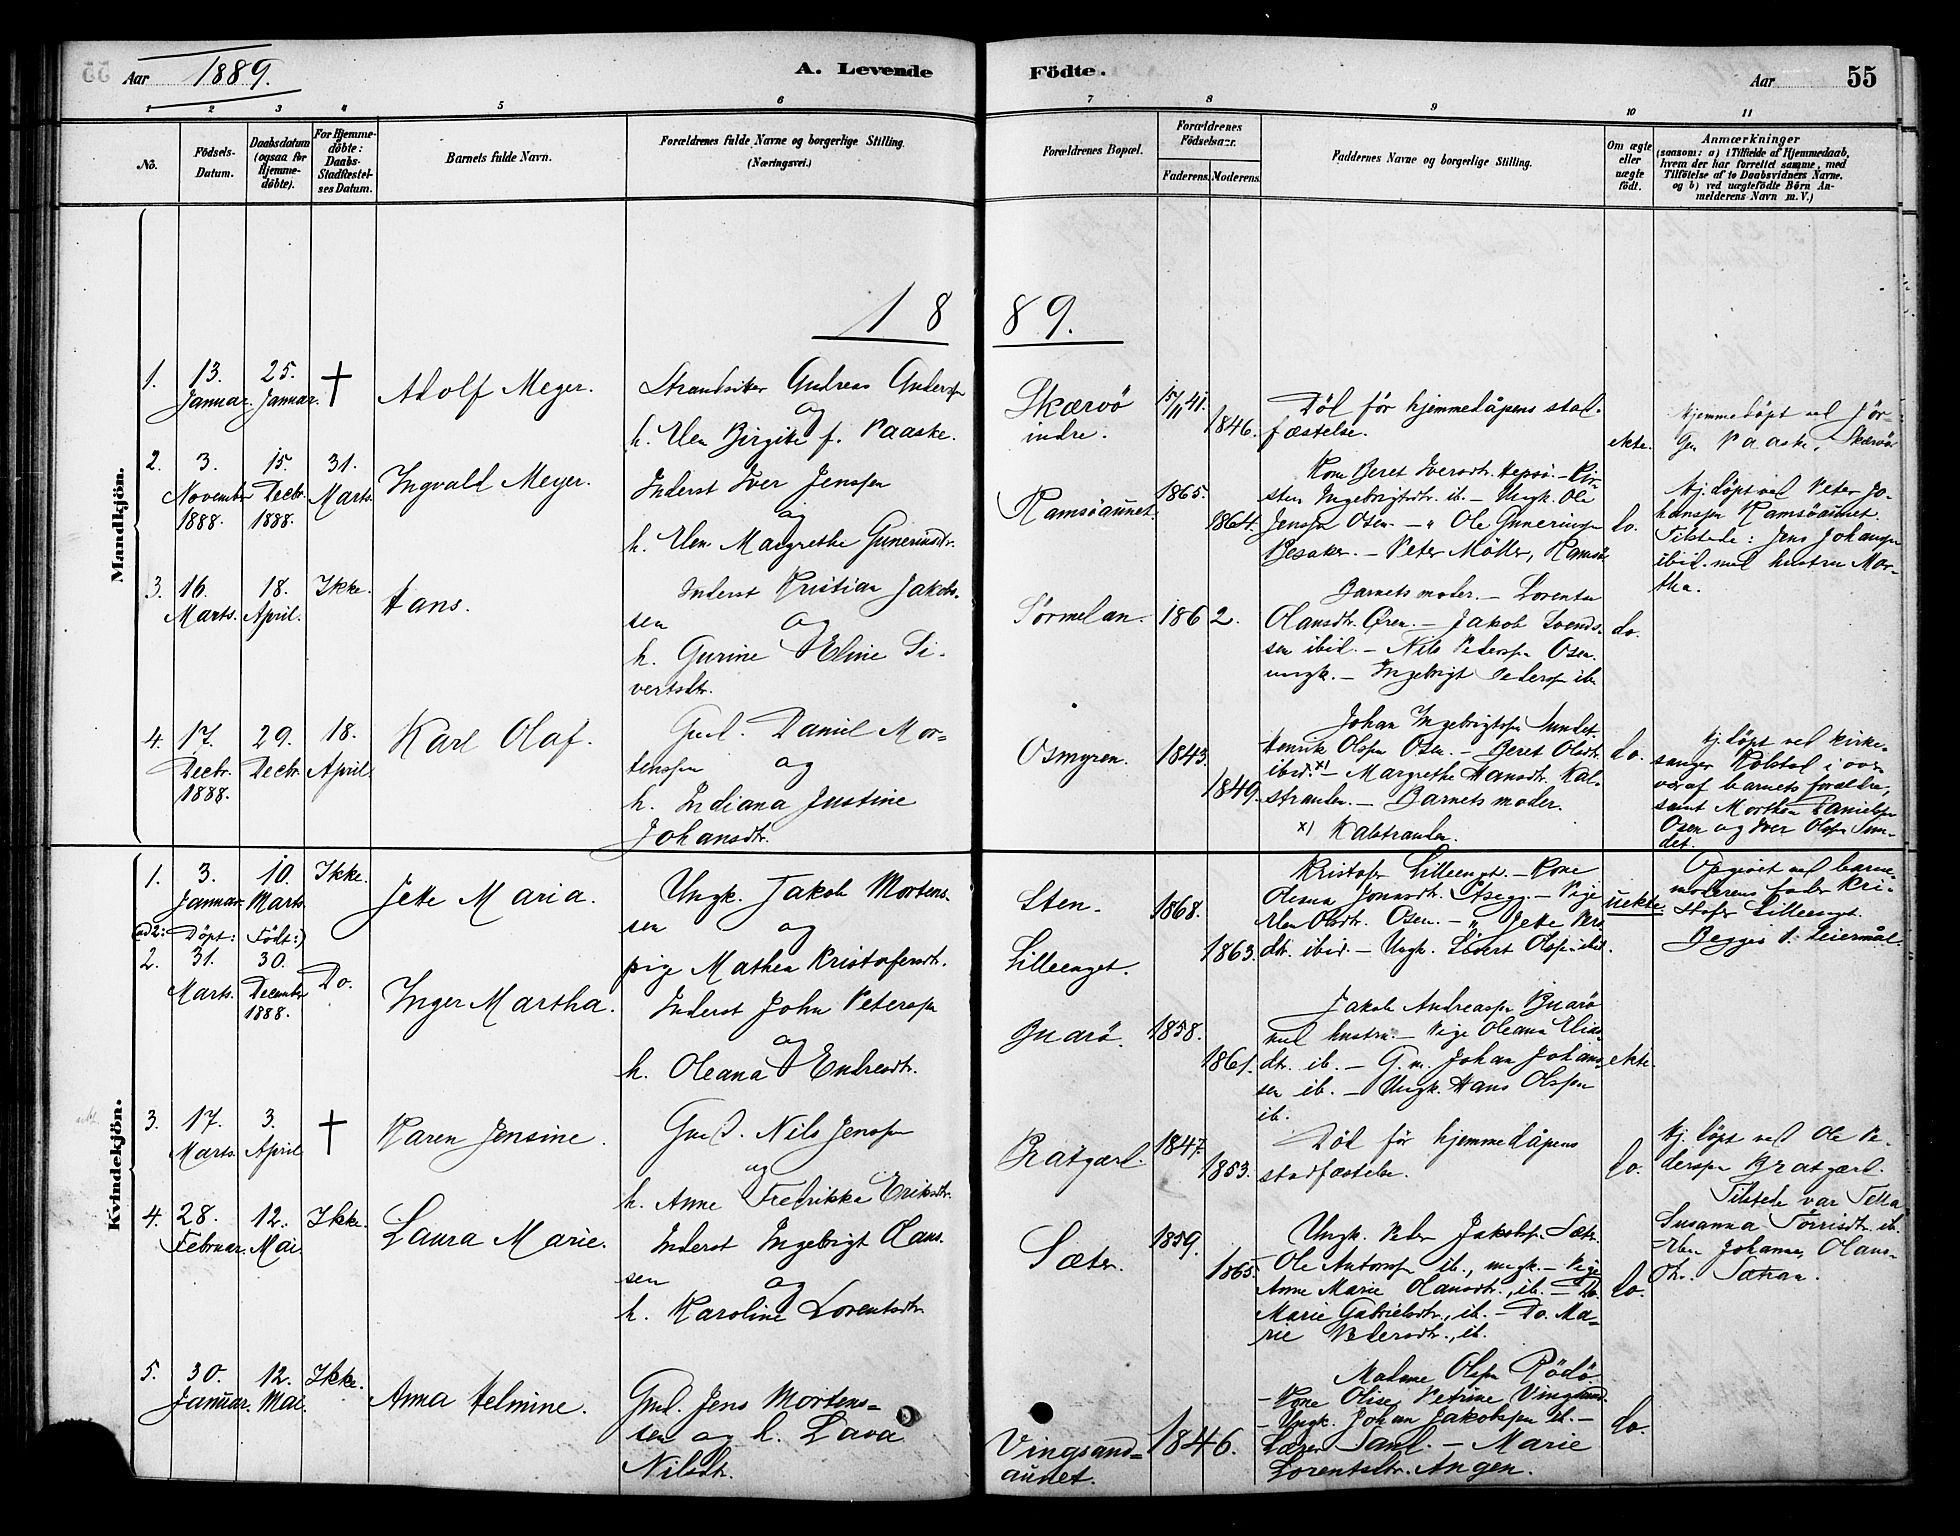 Aar 1889. A. Levende Födte. Aar 55
1 2 3 4 5 6 7 8 9 10 11
No.
Födsels-
Datum.
Daabsdatum
(ogsaa for
Hjemme-
döbte).
For Hjemme-
döbte:
Daabs-
Stadfæstel-
ses Datum.
Barnets fulde Navn.
Forældrenes fulde Navne og borgerlige Stilling.
(Næringsvei.)
Forældrenes Bopæl.
Forældrenes
Födselsaar.
Faderens. Moderens.
Faddernes Navne og borgerlige Stilling.
Om ægte
eller
uægte
födt.
Anmærkninger
(saasom: a) i Tilfælde af Hjemmedaab,
hvem der har forrettet samme, med
Tilföielse af to Daabsvidners Navne.
og b) ved uægtefödte Börn An-
melderens Navn m. V.)
1889.
Mandkjön.
1.
13.
Januar.
25.
Januar.
†
Adolf Meyer.
Strandsiter Andreas Anderssen
og
h. Elen Birgite f. Paaske.
Skærvö
indre.
15/11 41.
1846.
Död för hjemmedåpens stad-
fæstelse.
ekte.
Hjemmedöpt ved Jör-
gen Paaske, Skærvö
2.
3.
November
1888.
15.
Decbr.
1888.
31.
Marts.
Ingvald Meyer.
Inderst Iver Jenssen
og
h. Elen Margrethe Guneriusdtr.
Ramsöaunet.
1865.
1864.
Kone Beret Iversdtr. Hepsö. - Kir-
sten Ingebrigtsdtr. ib. - Ungk. Ole
Jenssen Osen. - " Ole Guneriussen
Bessaker. - Peter Möller, Ramsö
do.
Hj. döpt ved Peter Jo-
hanssen Ramsöaunet.
Tilstede: Jens Johanssen
ibid. med hustru Mar-
tha.
3.
16.
Marts.
18.
April.
Ikke.
Hans.
Inderst Kristian Jakob-
sen og
h. Gurine Eline Si-
vertsdtr.
Sörmelan.
1862.
Barnets moder. - Lorentse
Olausdtr. Ören. - Jakob Svends-
sen ibid. - Nils Pederssen Osen.
ungk. - Ingebrigt Pederssen ib.
do.
4.
17.
Decbr.
1888.
29.
Decbr.
18.
April.
Karl Olaf.
Gmd. Daniel Mor-
tenssen og
h. Indiana Justine
Johansdtr.
Osmyren.
1843.
1849.
Johan Ingebrigtssen Sundet.
Henrik Olssen Osen. - Beret Olsdtr.
ibid. x) - Margrethe Hansdtr. Kal-
stranden. - Barnets moder.
x) Kalstranden.
do.
Hj. döpt ved kirke-
sanger Kolstad i over-
vær af barnets forældre,
samt Morthen Danielssen
Osen og Iver Olssen Sun-
det.
Kvindekjön.
1.
3.
Januar.
10.
Marts.
Ikke.
Jette Maria.
Ungk. Jakob Mortens-
sen og
pige Mathea Kristofersdtr.
Sten.
Lilleenget.
1868.
1863.
Kristofer Lilleenget. - Kone
Olesna Jonasdtr. Strægg. - Pige
Elen Olsdtr. Osen. - " Jette Kri
dtr. ibid - Ungk. Sivert Olssen ibid.
uekte.
Opgivet ved barne-
moderens fader Kri-
stofer Lilleenget.
Begges 1. Leiermål.
(ad 2: Döpt: Födt:)
2.
31.
Marts.
30.
December
1888.
Do.
Inger Martha.
Inderst John Peterssen
og
h. Oleana Endresdtr.
Buarö.
1858.
1861.
Jakob Andreassen Buarö
med hustru. - Pige Oleana Elias-
dtr. ib. - G.m. Johan Johans-
sen ib. - Ungk. Hans Olssen
ib.
ekte.
3.
17.
Marts.
3.
April
†
Karen Jensine.
Gmd. Nils Jenssen
og
h. Anne Fredrikke Eriksdtr.
Bratgærd.
1847.
1853.
Död för hjemmedåpens
stadfæstelse.
do.
Hj. döpt ved Ole Pe-
derssen Bratgærd.
Tilstede var Tella
Susanna Törrisdtr. ib.
Elen Johanna Olaus-
dtr. Sætran.
4.
28.
Februar.
12.
Mai.
Ikke.
Laura Marie.
Inderst Ingebrigt Olaus-
sen og
h. Karoline Lorentsdtr.
Sæter.
1859.
1865.
Ungk. Peder Jakobssen Sæter.
Ole Antonssen ib., ungk. - Pige
Anne Marie Olausdtr., ib. - Do.
Marie Gabrielsdtr., ib. - Do. Ma-
rie Pedersdtr., ib.
do.
5.
30.
Januar.
12.
Mai.
Ikke.
Anna Helmine.
Gmd. Jens Mortens-
sen og h. Lava
Nilsdtr.
Vingsand-
aunet.
1846.
Madme Olssen Rödö.
- Kone Olise Petrine Vingsand.
- Ungk. Johan Jakobssen ib. -
Lærer Sand. - Marie
Lorentsdtr. Angen.
do.